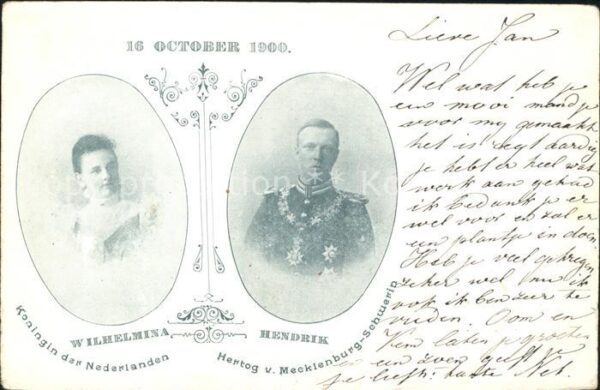 16 OCTOBER 1900.
WILHELMINA
Koningin der Nederlanden
HENDRIK
Hertog v. Mecklenburg-Schwerin
Lieve Jan
Wel wat heb je
een mooi mandje
voor mij gemaakt
het is regt aardig
je hebt er heel wat
werk aan gehad
ik bedank je er
wel voor en zal er
een plantje in doen
Heb je veel gekregen
zeker wel nu ik
ook ik ben zeer te
vreden. Oom en
laten je groeten
en een zoen geeft
je liefh. tante